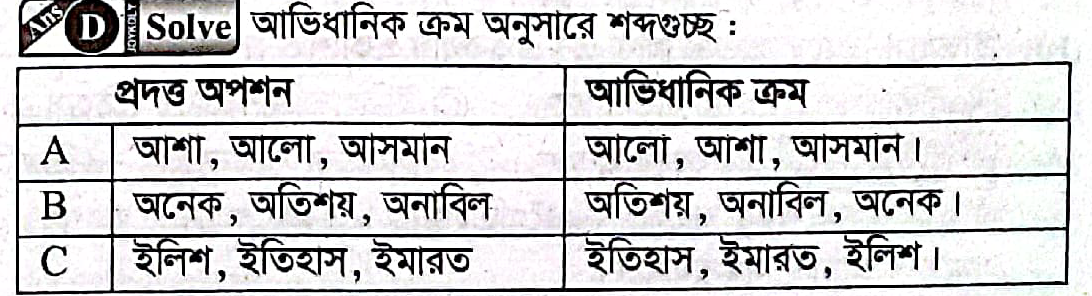 Ans D JOYKOLY Solve আভিধানিক ক্রম অনুসারে শব্দগুচ্ছ :
প্রদত্ত অপশন আভিধানিক ক্রম
A আশা, আলো, আসমান আলো, আশা, আসমান।
B অনেক, অতিশয়, অনাবিল অতিশয়, অনাবিল, অনেক।
C ইলিশ, ইতিহাস, ইমারত ইতিহাস, ইমারত, ইলিশ।